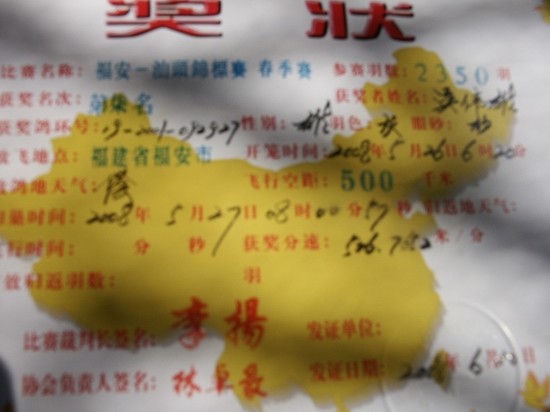 奖状
比赛名称: 福安一汕頭錦標赛 春季赛 参赛羽数: 2350 羽
获奖名次: 第柒名 获奖者姓名:
获奖鸽环号: 09-2001-092927 性别: 雄 羽色: 眼砂:
放飞地点: 福建省福安市 开笼时间: 2008年5月26日6时20分
放鸽地天气: 阴 飞行空距: 500 千米
时间: 2008年5月27日08时00分57秒 归返地天气:
飞行时间: 分 秒 获奖分速: 526.7852 米/分
归返羽数: 羽
比赛裁判长签名: 李揚 发证单位:
协会负责人签名: 林 发证日期: 年6月 日